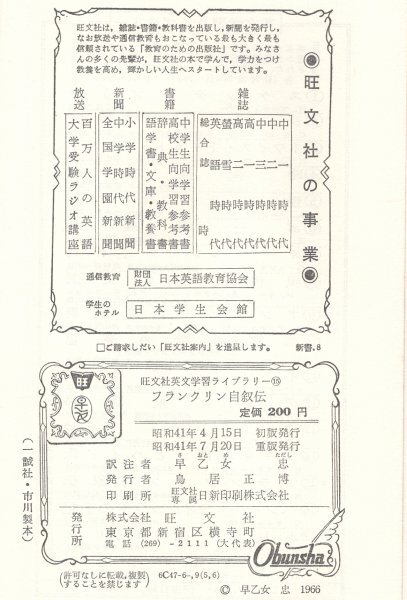 旺文社は、雑誌・書籍・教科書を出版し、新聞を発行し、
なお放送や通信教育もおこなっている最も大きく最も
信頼されている「教育のための出版社」です。みなさ
んの多くの先輩が、旺文社の本で学んで、学力をつけ
教養を高め、輝かしい人生へスタートしています。
旺文社の事業
雑誌
中一時代
中二時代
中三時代
高一時代
高二時代
螢雪時代
英語時代
総合誌 時
書籍
中学生向学習参考書
高校生向学習参考書
辞典・教科書
語学書・文庫・教養書
新聞
小学時代新聞
中学時代新聞
全国学園新聞
放送
百万人の英語
大学受験ラジオ講座
通信教育 財団法人 日本英語教育協会
学生のホテル 日本学生会館
□ご請求しだい「旺文社案内」を進呈します。 新書.8
旺
旺文社英文学習ライブラリー⑮
フランクリン自叙伝
定価 200 円
昭和41年4月15日 初版発行
昭和41年7月20日 重版発行
さおとめ ただし
訳注者 早乙女 忠
発行者 鳥居正博
印刷所 旺文社専属 日新印刷株式会社
発行所 株式会社 旺文社
東京都新宿区横寺町
電話 (269) -2111 (大代表)
Obunsha
(許可なしに転載,複製することを禁じます) 6C47-6-,9(5,6)
© 早乙女 忠 1966
(一誠社・市川製本)